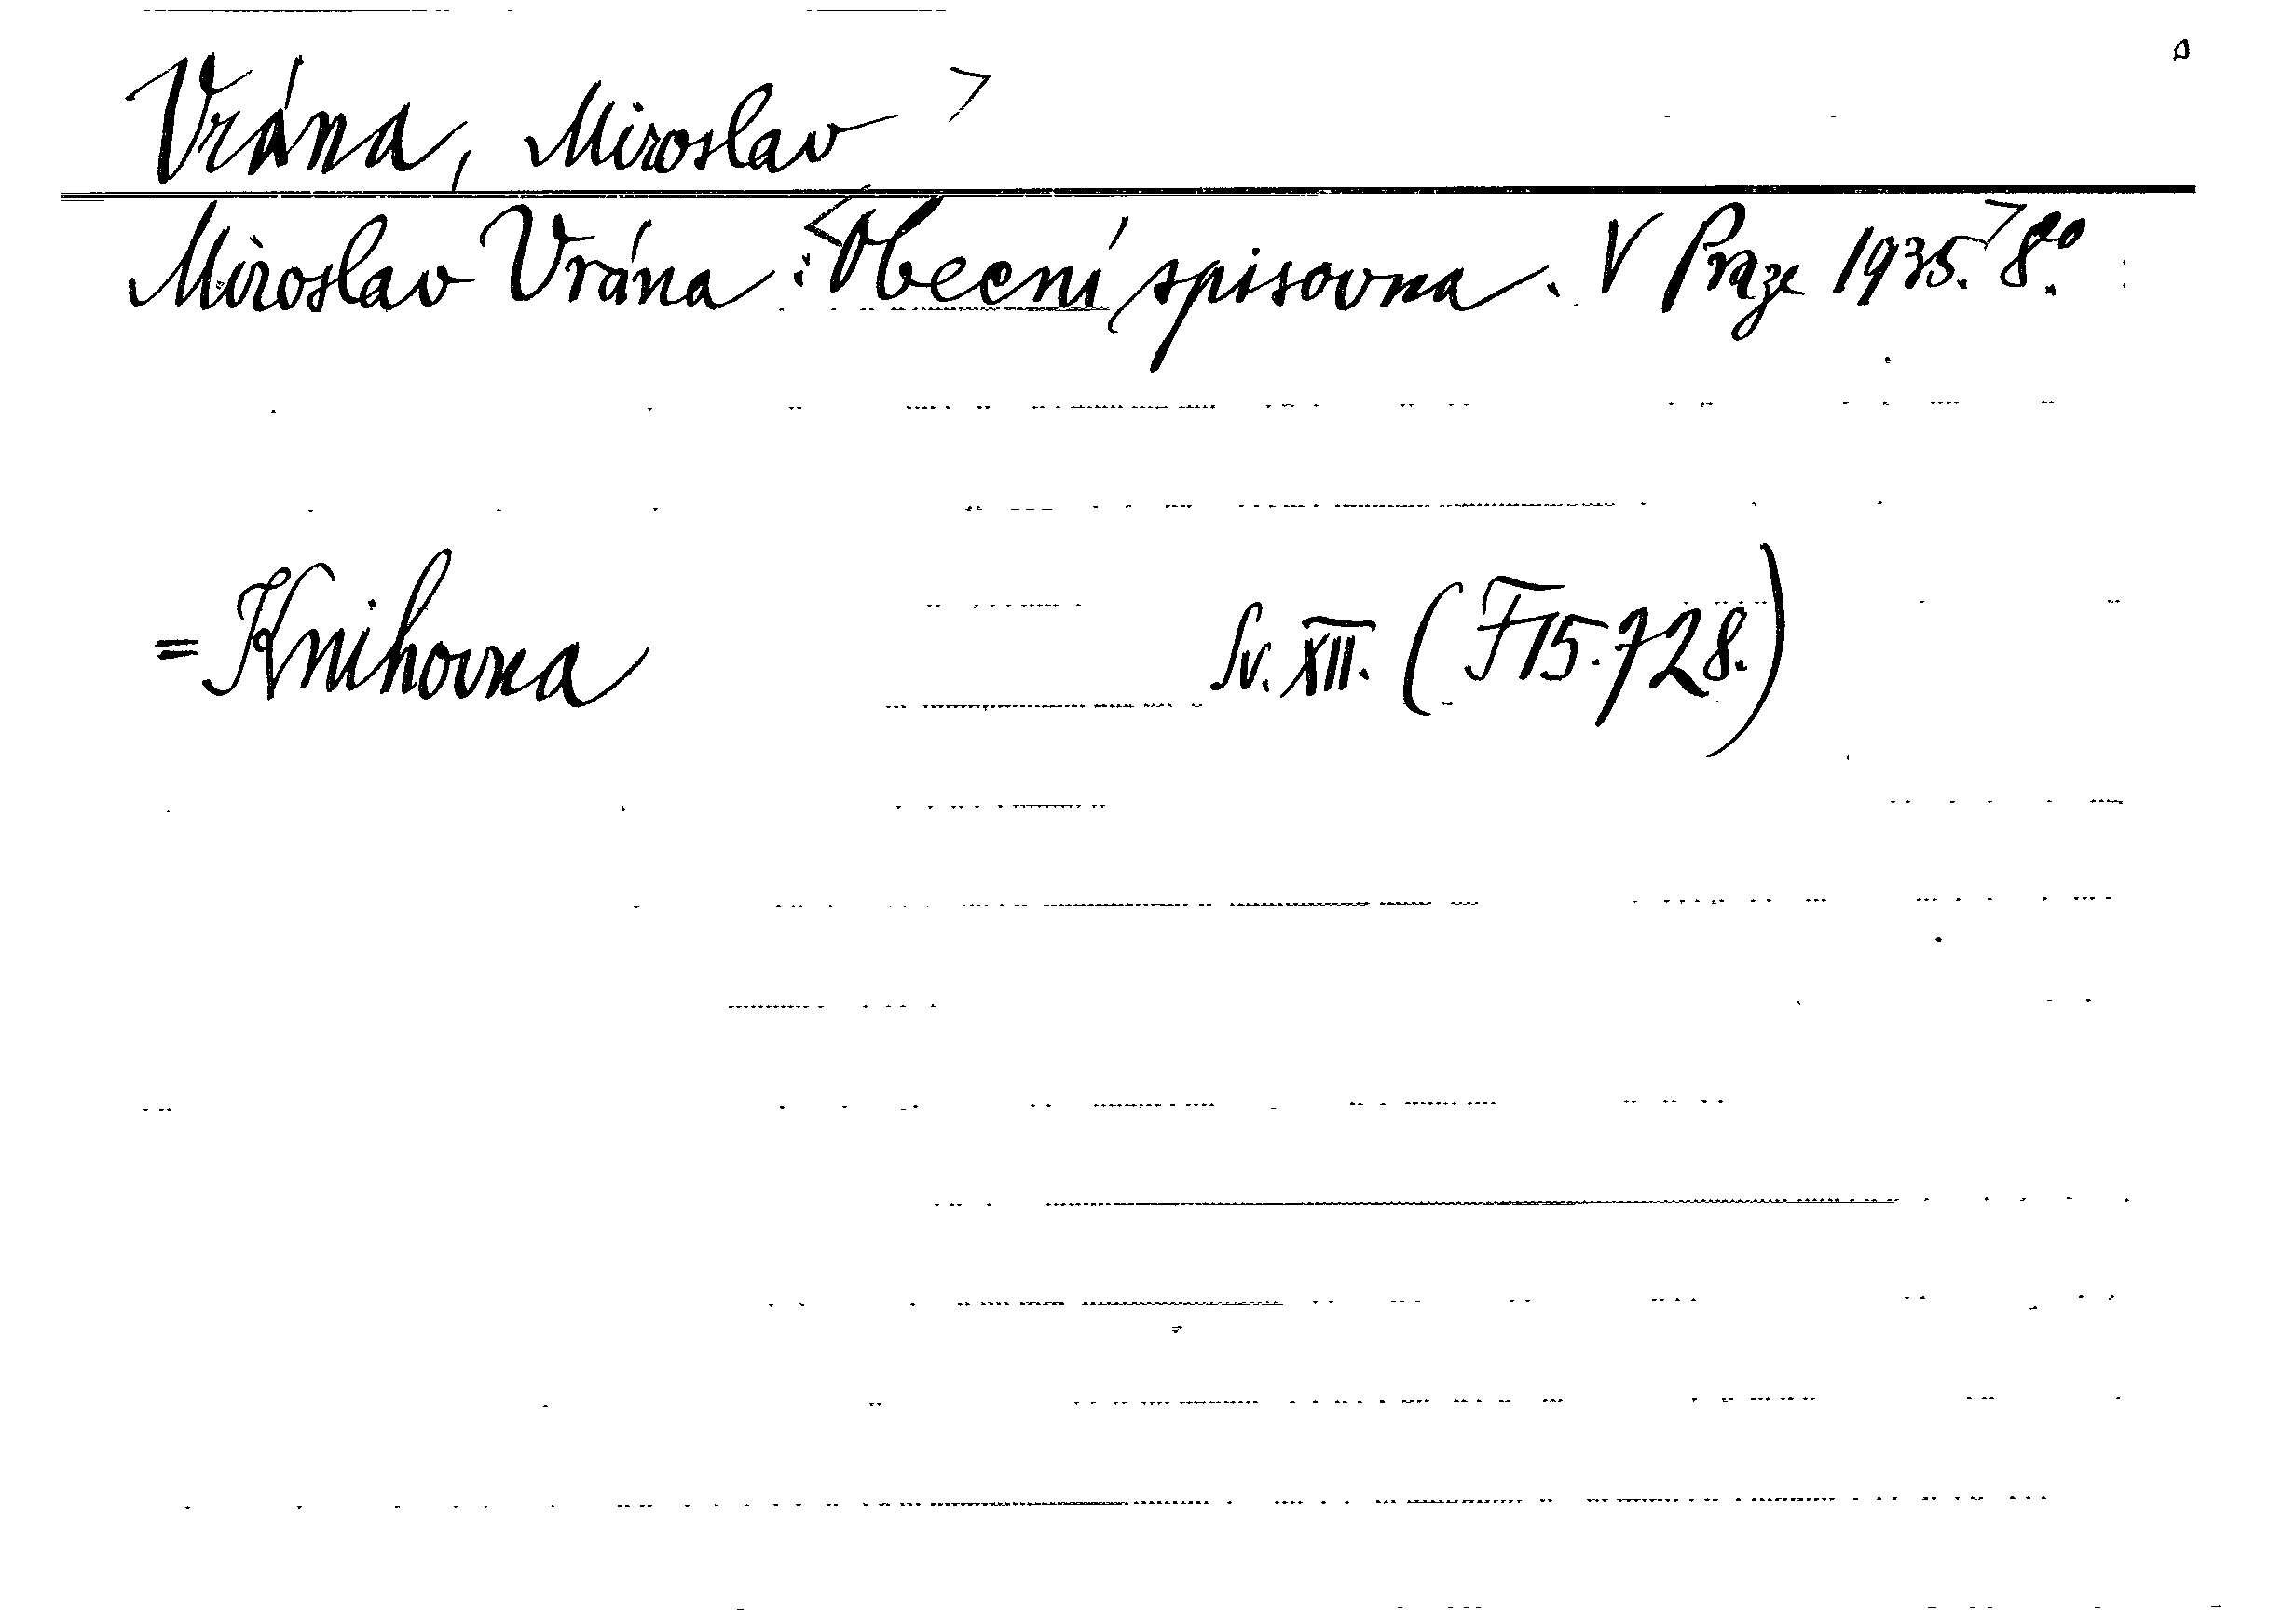 Vrána, Miroslav >
Miroslav Vrána: <Obecní spisovna. V Praze 1935.> 8º.
= Knihovna Sv. XII. (F 15.728.)